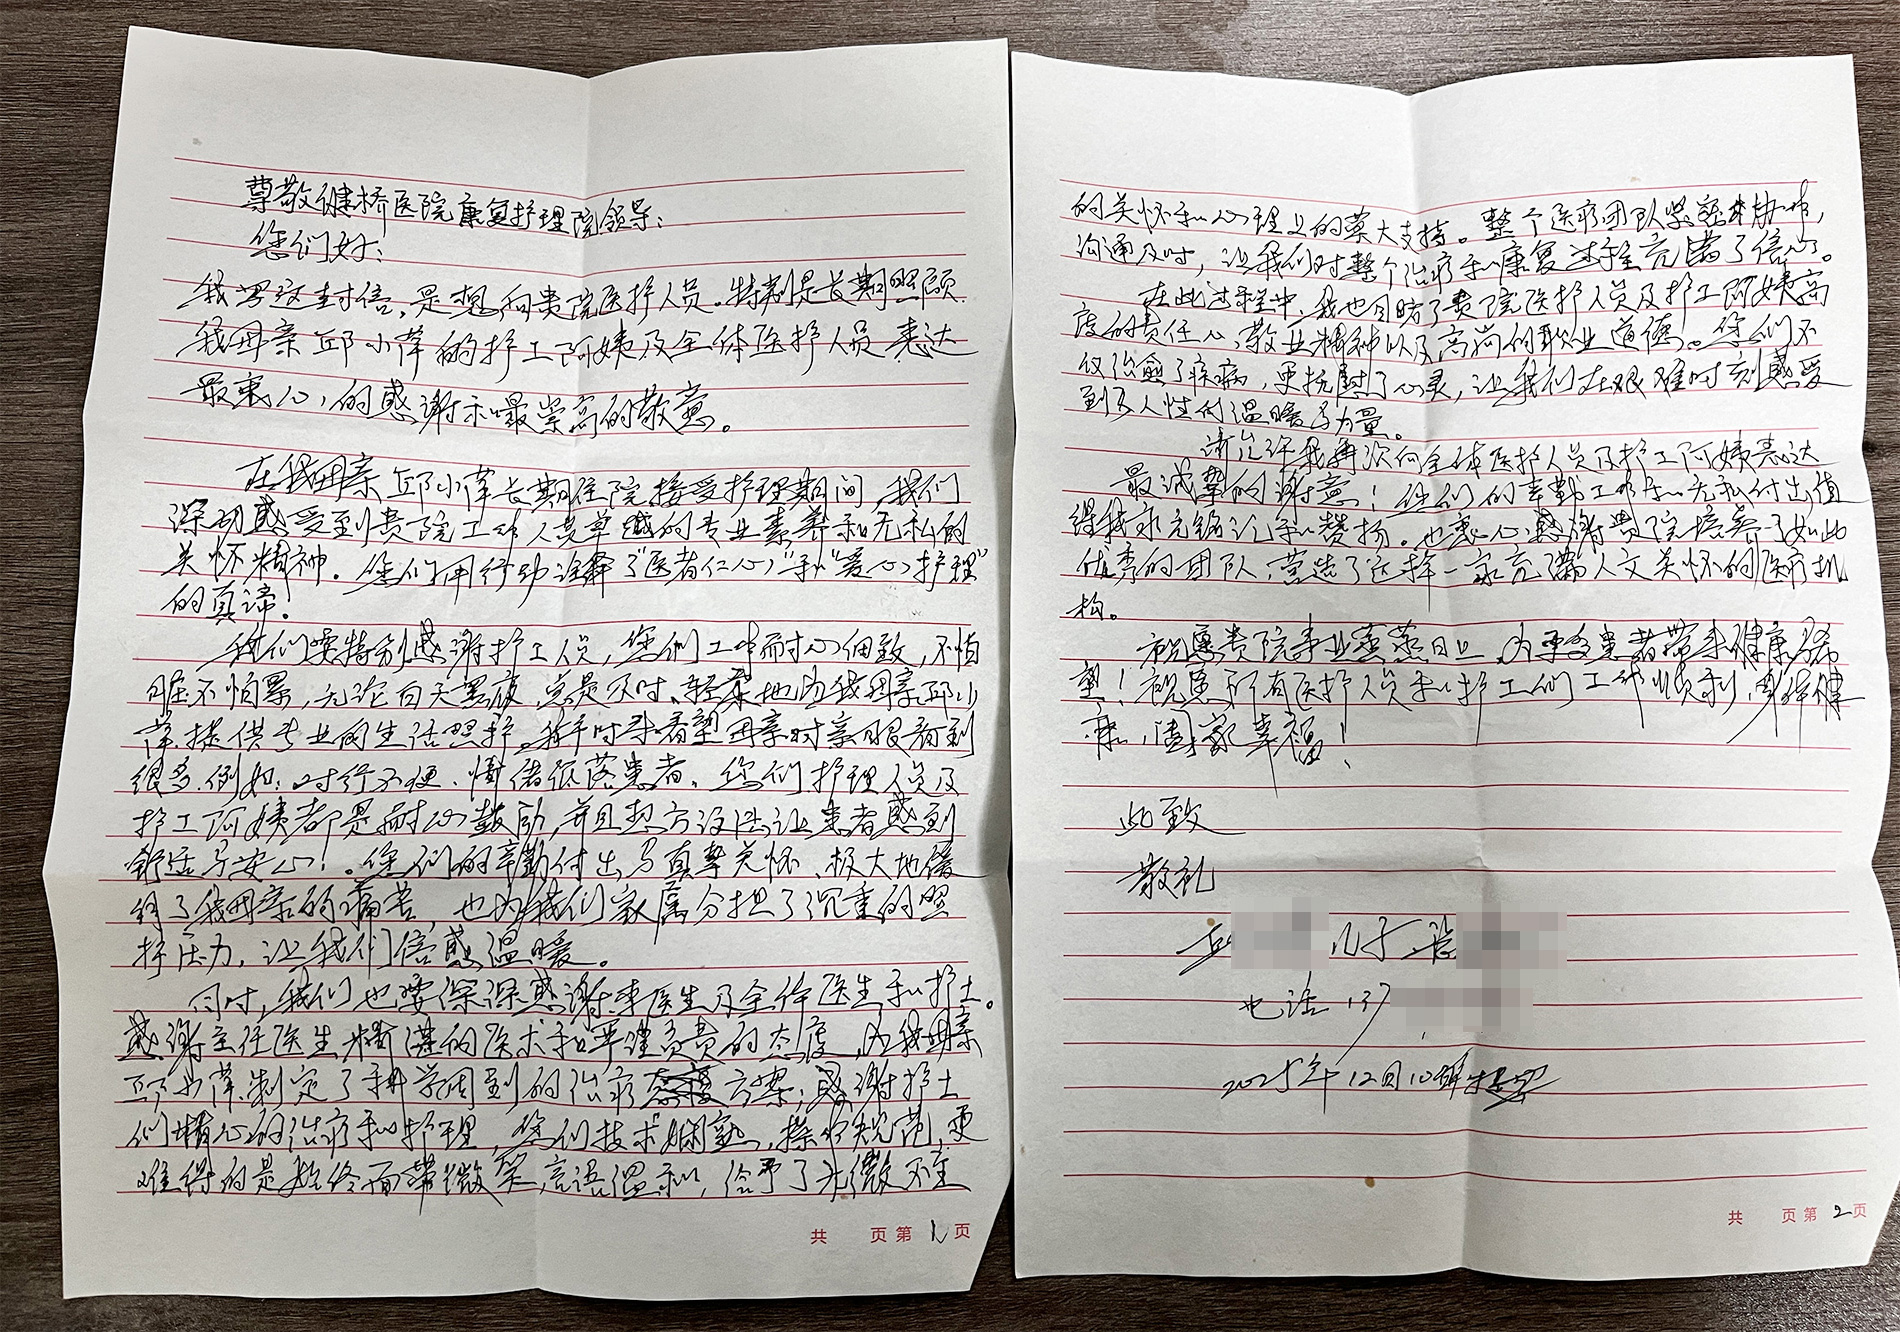 尊敬健桥医院康复护理院领导:
您们好:
我写这封信,是想向贵院医护人员。特别是长期照顾
我母亲邱小萍的护工阿姨及全体医护人员表达
最衷心的感谢和最崇高的敬意。
在我母亲邱小萍长期住院接受护理期间,我们
深切感受到贵院工作人员卓越的专业素养和无私的
关怀精神。您们用行动诠释了“医者仁心”和“爱心护理”
的真谛!
我们要特别感谢护工人员,您们工作耐心细致,不怕
脏不怕累,无论白天黑夜,总是及时、轻柔地为我母亲邱小
萍提供专业的生活照护。我平时来看望母亲时亲眼看到
很多,例如:对行不便、情绪低落患者,您们护理人员及
护工阿姨都是耐心鼓励,并且想方设法让患者感到
舒适与安心!您们的辛勤付出与真挚关怀、极大地缓
解了我母亲的痛苦,也为我们家属分担了沉重的照
护压力,让我们倍感温暖。
同时,我们也要深深感谢李医生及全体医生和护士。
感谢主任医生精湛的医术和严谨负责的态度,为我母亲
邱小萍制定了科学周到的治疗方案;感谢护士
们精心的治疗和护理,您们技术娴熟,操作规范,更
难得的是始终面带微笑,言语温和,给予了无微不至
共 页第1页
的关怀和心理上的莫大支持。整个医疗团队紧密协作,
沟通及时,让我们对整个治疗和康复过程充满了信心。
在此过程中,我也目睹了贵院医护人员及护工阿姨高
度的责任心、敬业精神以及高尚的职业道德。您们不
仅治愈了疾病,更抚慰了心灵,让我们在艰难时刻感受
到了人性的温暖与力量。
请允许我再次向全体医护人员及护工阿姨表达
最诚挚的谢意!您们的辛勤工作和无私付出值
得我永远铭记和赞扬。也衷心感谢贵院培养了如此
优秀的团队,营造了这样一家充满人文关怀的医疗机
构。
祝愿贵院事业蒸蒸日上,为更多患者带来健康与希
望!祝愿所有医护人员和护工们工作顺利,身体健
康,阖家幸福!
此致
敬礼
儿子
电话137
2025年12月10日
共 页第2页